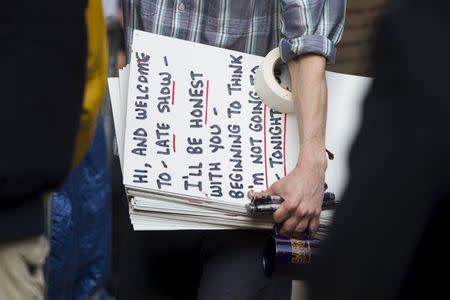 HI, AND WELCOME
TO - LATE SHOW -
I'LL BE HONEST
WITH YOU -
BEGINNING TO THINK
I'M NOT GOING TO
- TONIGHT